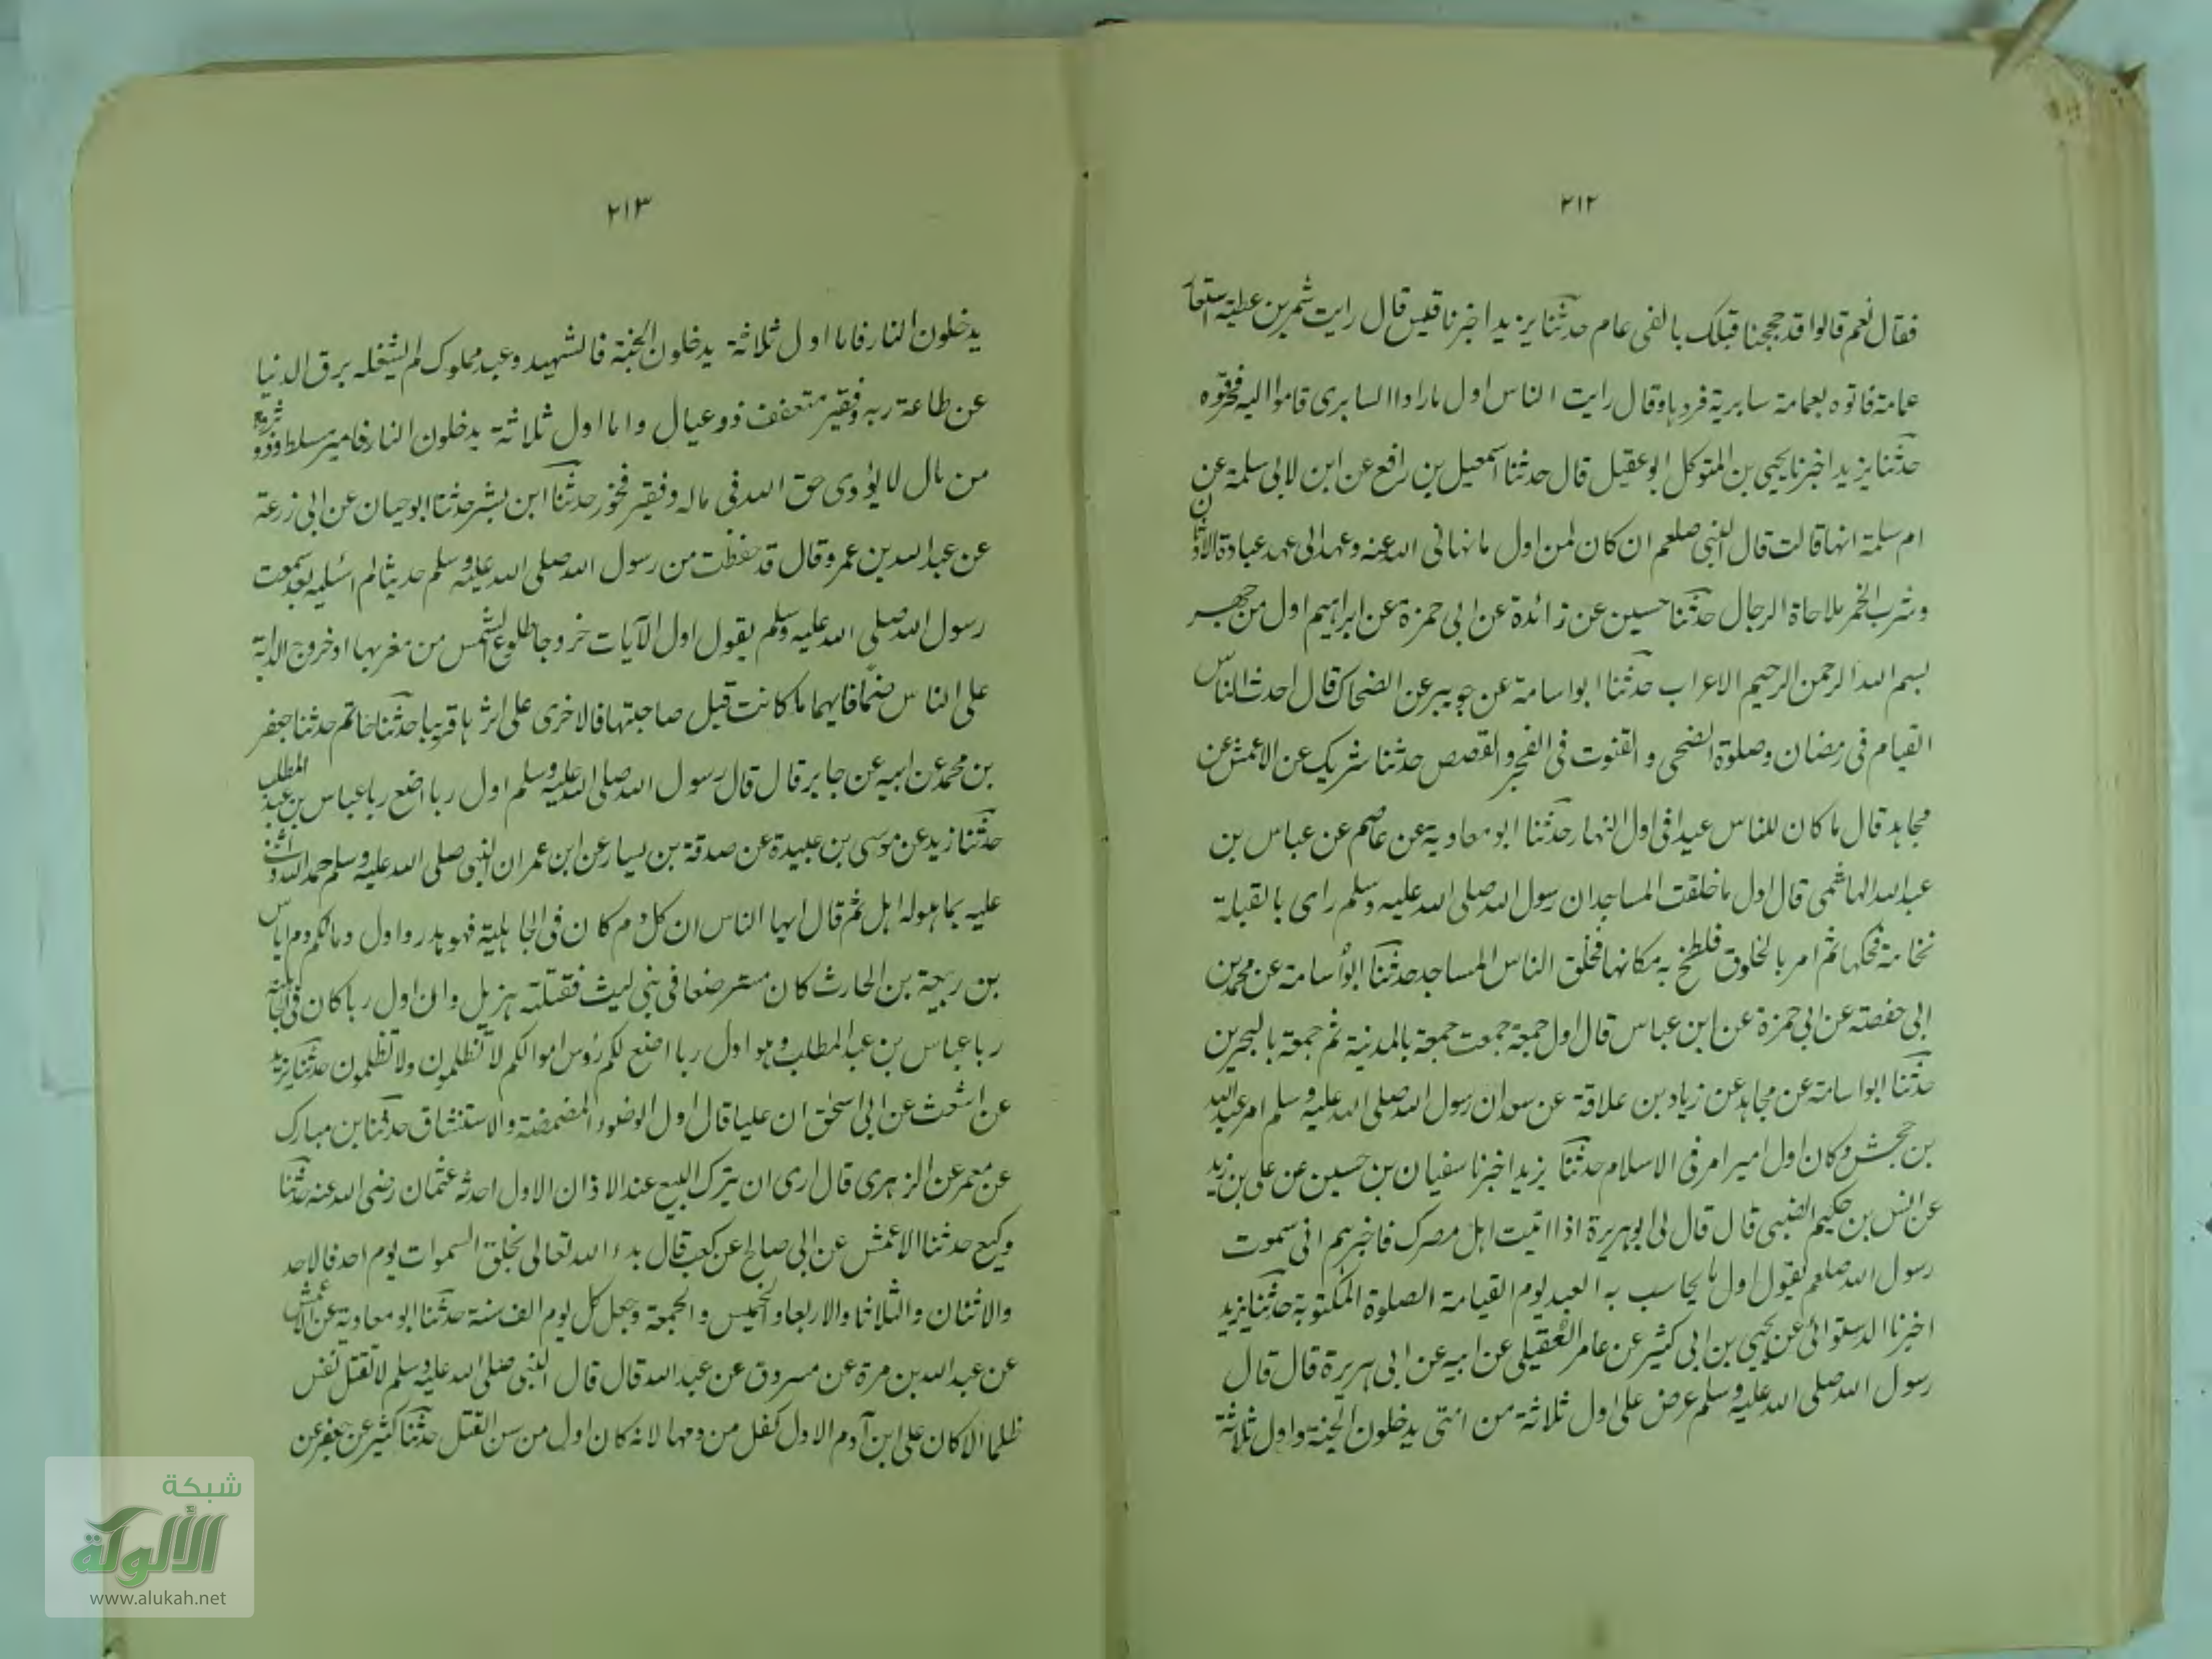 ٢١٢
فقال نعم قالوا قد حججنا قبلك بالفي عام حدثنا يزيد اخبرنا قيس قال رايت شمر بن عطية استعار
عمامة فاتوه بعمامة سابرية فردها وقال رايت الناس اول ما راداالسابرى قاموا اليه فخرقوه
حدثنا يزيد اخبرنا يحيى بن المتوكل ابو عقيل قال حدثنا اسمعيل بن رافع عن ابن لابى سلمة عن
ام سلمة انها قالت قال النبى صلعم ان كان لمن اول ما نهانى الله عنه وعهد الى عهد عبادة الاوثان
وشرب الخمر ملاحاة الرجال حدثنا حسين عن زائدة عن ابى حمزة عن ابراهيم اول من جهر
بسم الله الرحمن الرحيم الاعراب حدثنا ابو اسامة عن جويبر عن الضحاك قال احدث الناس
القيام فى رمضان وصلوة الضحى و القنوت فى الفجر والقصص حدثنا شريك عن الاعمش عن
مجاهد قال ما كان للناس عيد الا فى اول النهار حدثنا ابو معاوية عن عاصم عن عباس بن
عبد الله الهاشمى قال اول ما خلقت المساجد ان رسول الله صلى الله عليه وسلم راى بالقبلة
نخامة فحكها ثم امر بالخلوق فلطخ به مكانها فخلق الناس المساجد حدثنا ابو أسامة عن محمد بن
ابى حفصة عن ابى حمزة عن ابن عباس قال اول جمعة جمعت جمعة بالمدينة ثم جمعة بالبحرين
حدثنا ابو اسامة عن مجاهد عن زياد بن علاقة عن سعد ان رسول الله صلى الله عليه وسلم امر عبد الله
بن جحش وكان اول امير امر فى الاسلام حدثنا يزيد اخبرنا سفيان بن حسين عن على بن زيد
عن انس بن حكيم الضبى قال قال لى ابو هريرة اذا اتيت اهل مصرك فاخبرهم انى سمعت
رسول الله صلعم يقول اول ما يحاسب به العبد يوم القيامة الصلوة المكتوبة حدثنا يزيد
اخبرنا الدستوائى عن يحيى بن ابى كثير عن عامر العقيلى عن ابيه عن ابى هريرة قال قال
رسول الله صلى الله عليه وسلم عرض على اول ثلاثة من امتى يدخلون الجنة واول ثلاثة
٢١٣
يدخلون النار فاما اول ثلاثة يدخلون الجنة فالشهيد وعبد مملوك لم يشغله برق الدنيا
عن طاعة ربه وفقير متعفف ذو عيال واما اول ثلاثة يدخلون النار فامير مسلط وذو ثروة
من مال لا يؤدى حق الله فى ماله وفقير فخور حدثنا ابن بشر حدثنا ابو حيان عن ابى زرعة
عن عبد الله بن عمرو قال قد حفظت من رسول الله صلى الله عليه وسلم حديثا لم انسه بعد سمعت
رسول الله صلى الله عليه وسلم يقول اول الآيات خروجا طلوع الشمس من مغربها او خروج الدابة
على الناس ضحًا فايهما ما كانت قبل صاحبتها فالاخرى على اثرها قريبا حدثنا حاتم حدثنا جعفر
بن محمد عن ابيه عن جابر قال قال رسول الله صلى الله عليه وسلم اول ربا اضع ربا عباس بن عبد المطلب
حدثنا زيد عن موسى بن عبيدة عن صدقة بن يسار عن ابن عمر ان النبى صلى الله عليه وسلم حمد الله واثنى
عليه بما هوله اهل ثم قال ايها الناس ان كل دم كان فى الجاهلية فهو هدر واول دمائكم دم اياس
بن ربيعة بن الحارث كان مسترضعا فى بنى ليث فقتلته هزيل وان اول ربا كان فى الجاهلية
ربا عباس بن عبد المطلب وهو اول ربا اضع لكم رؤس اموالكم لا تظلمون ولا تظلمون حدثنا يزيد
عن اشعث عن ابى اسحق ان عليا قال اول الوضوء المضمضة والاستنشاق حدثنا ابن مبارك
عن معمر عن الزهرى قال ارى ان يترك البيع عند الاذان الاول احدثه عثمان رضى الله عنه حدثنا
وكيع حدثنا الاعمش عن ابى صالح عن كعب قال بدء الله تعالى بخلق السموات يوم احد فالاحد
والاثنان والثلاثا والاربعا والخميس والجمعة وجعل كل يوم الف سنة حدثنا ابو معاوية عن الاعمش
عن عبد الله بن مرة عن مسروق عن عبد الله قال قال النبى صلى الله عليه وسلم لا تقتل نفس
ظلما الا كان على ابن آدم الاول كفل من دمها لانه كان اول من سن القتل حدثنا كثير عن جعفر عن
شبكة
الألوكة
www.alukah.net